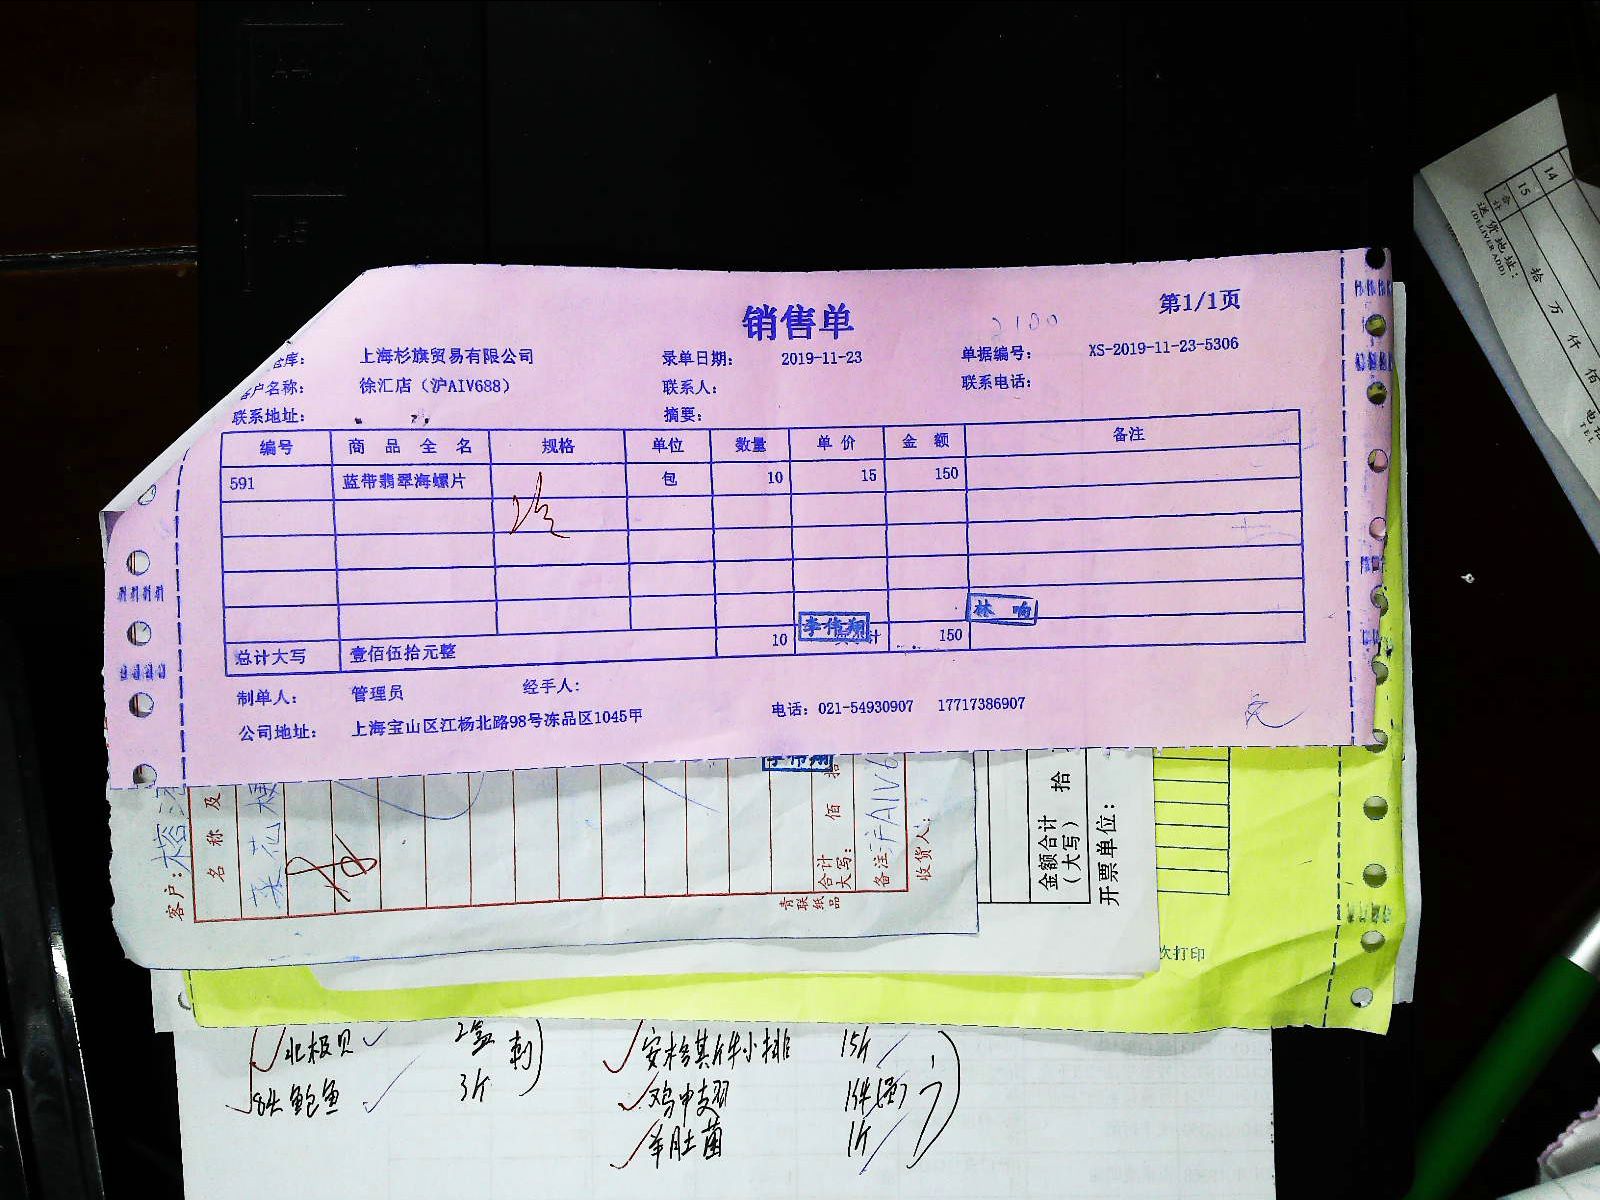 销售单
第1/1页
2100
库： 上海杉旗贸易有限公司 录单日期： 2019-11-23 单据编号： XS-2019-11-23-5306
户名称： 徐汇店（沪AIV688） 联系人： 联系电话：
联系地址： 摘要：
编号 商品全名 规格 单位 数量 单价 金额 备注
591 蓝带翡翠海螺片 包 10 15 150
林响
李伟翔
总计大写 壹佰伍拾元整 10 计 150
制单人： 管理员 经手人：
公司地址： 上海宝山区江杨北路98号冻品区1045甲 电话：021-54930907 17717386907
李伟翔
客户：
名称及
菜花
合计大写： 佰 拾
备注 沪AIV6
收货人：
青联纸品
金额合计（大写） 拾
开票单位：
次打印
北极贝 2盒 刺
8头鲍鱼 3斤
安格其斤牛小排 15斤
鸡中翅
羊肚菌 1斤
14
15
合计
拾 万 仟 佰
送货地址：
(DELIVER ADD)
A4
A5